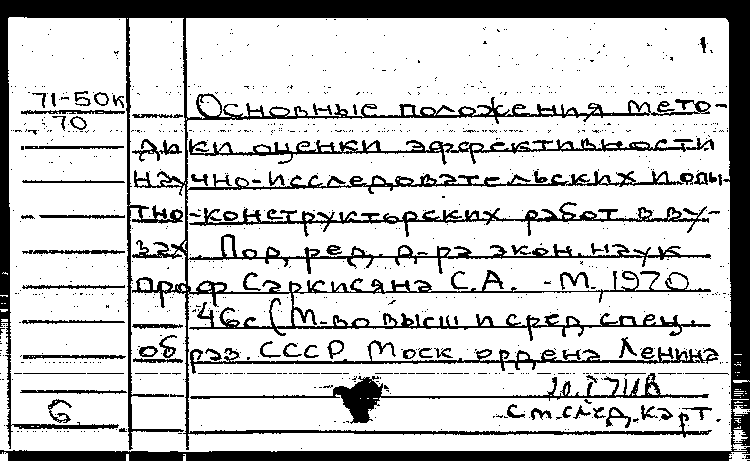 1.
71-50к
70
Основные положения мето-
дики оценки эффективности
научно-исследовательских и опы-
тно-конструкторских работ в ву-
зах. Под. ред. д-ра экон. наук
проф Саркисяна С.А. -М, 1970
46с (М-во высш. и сред. спец.
образ. СССР. Моск. ордена Ленина
см. след. карт.
6